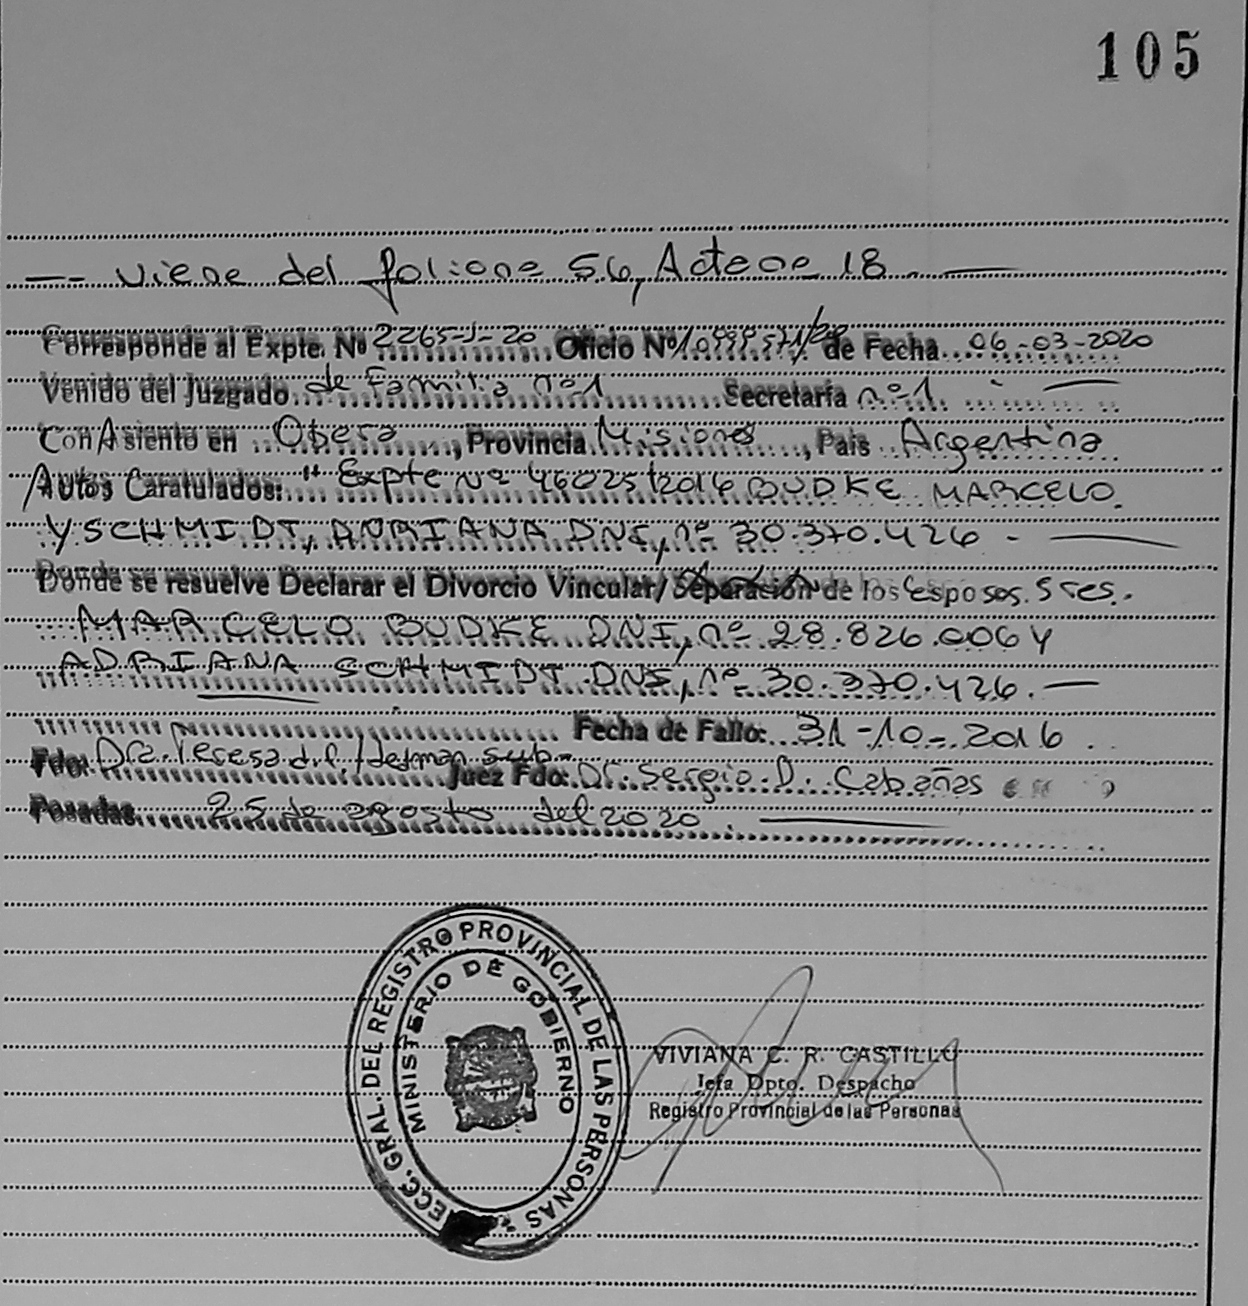 105
— viene del folio nº 56, Acta nº 18. —
Corresponde al Expte. Nº 2265-J-20 Oficio Nº de Fecha 06-03-2020
Venido del Juzgado de Familia nº 1 Secretaría nº 1. —
Con Asiento en Obera, Provincia Misiones, Pais Argentina
Autos Caratulados: "Expte nº 46025/2016 BUDKE MARCELO
Y SCHMIDT, ADRIANA DNI, nº 30.370.426 - —
Donde se resuelve Declarar el Divorcio Vincular/Separación de los esposos. Sres.
MARCELO BUDKE DNI, nº 28.826.006 Y
ADRIANA SCHMIDT DNI, nº 30.370.426. —
Fecha de Fallo: 31-10-2016
Fdo: Dra. Teresa del sub- Juez Fdo: Dr. Sergio D. Cabañas
Posadas, 25 de agosto del 2020. —
DIRECC. GRAL. DEL REGISTRO PROVINCIAL DE LAS PERSONAS
MINISTERIO DE GOBIERNO
VIVIANA C. R. CASTILLO
Jefa Dpto. Despacho
Registro Provincial de las Personas